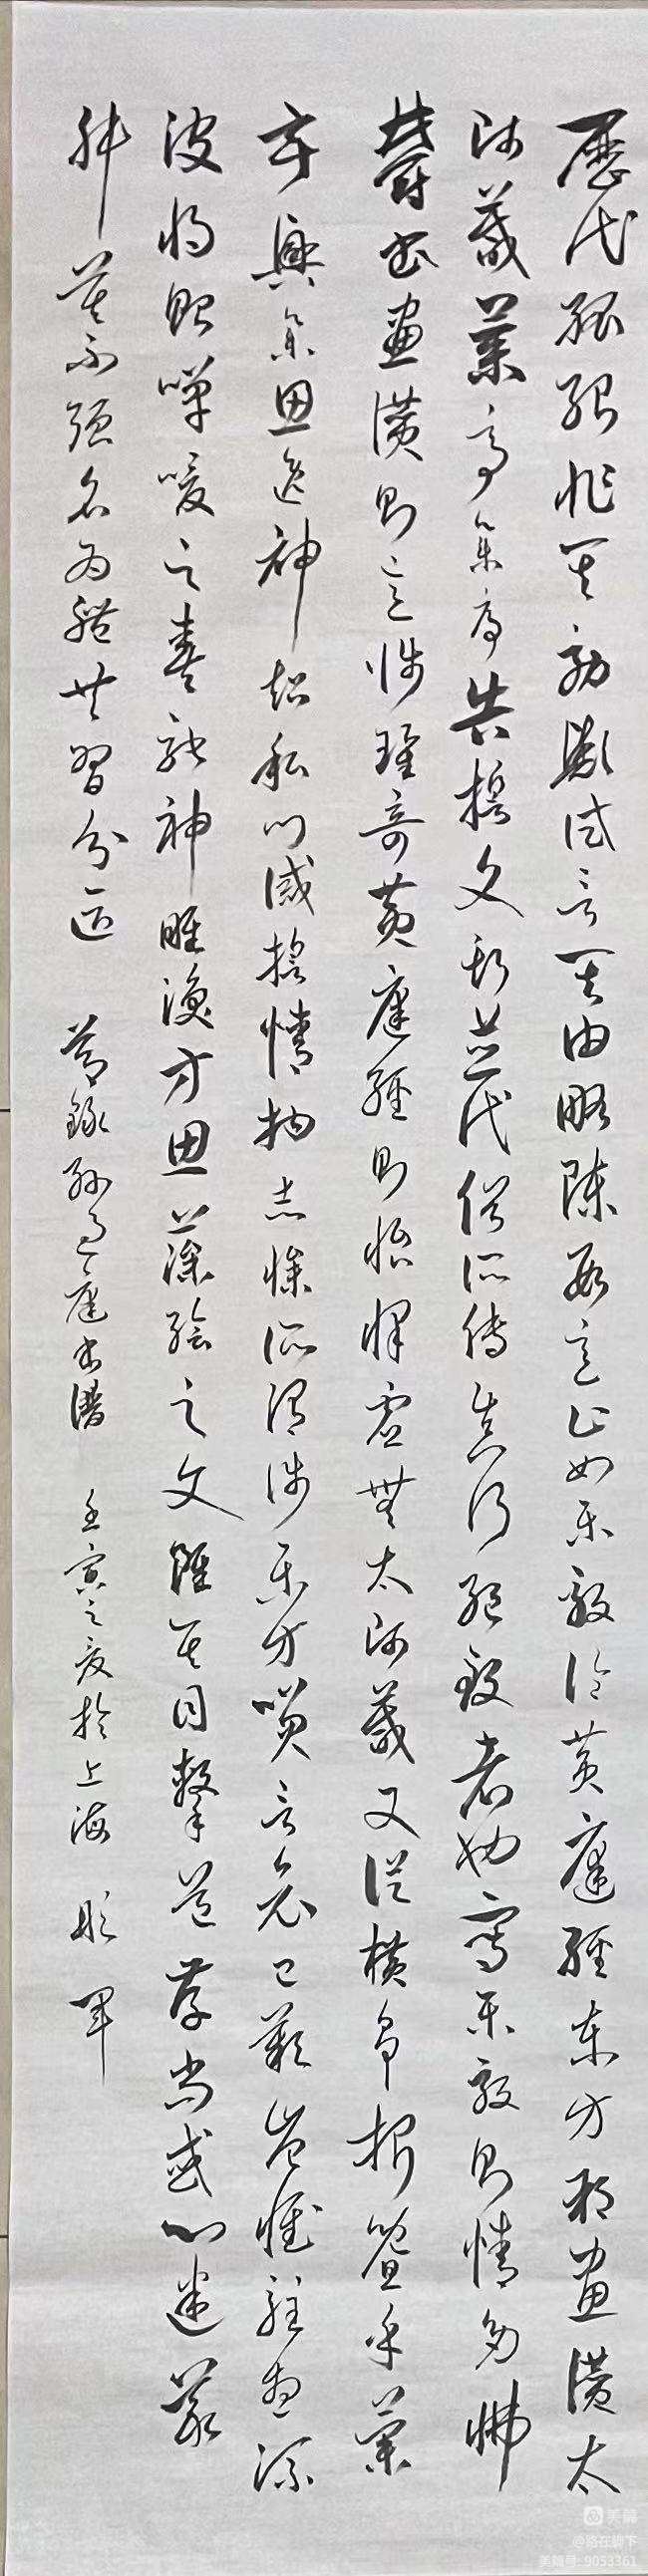 歷代孤紹非其効歟試言其由略陳數意止如樂毅論黄庭經東方朔畫讚太
師箴蘭亭集序告誓文斯並代俗所傳真行絕致者也寫樂毅則情多怫
鬱書畫讚則意涉瓌奇黄庭經則怡懌虛無太師箴又縱橫爭折暨乎蘭
亭興集思逸神超私門誡誓情拘志慘所謂涉樂方笑言哀已歎豈惟駐想流
波將貽嘽喛之奏馳神睢渙方思藻繪之文雖其目擊道存尚或心迷議
舛莫不強名為體共習分區 節錄孫過庭書譜 壬寅之夏於上海 軍
美篇
@路在脚下
美篇号:9053361